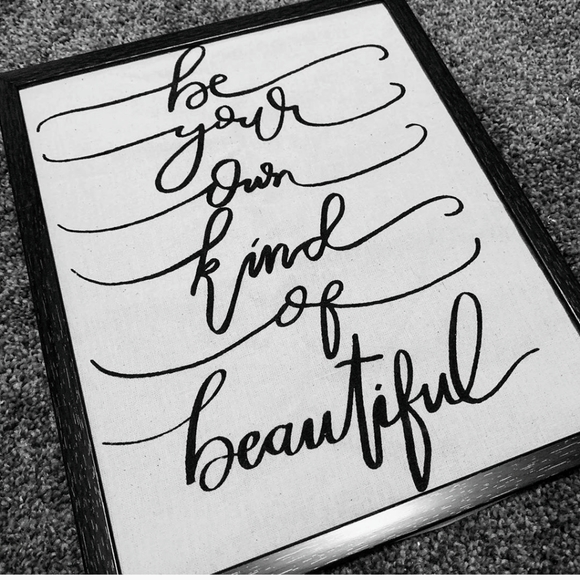 be
your
own
kind
of
beautiful